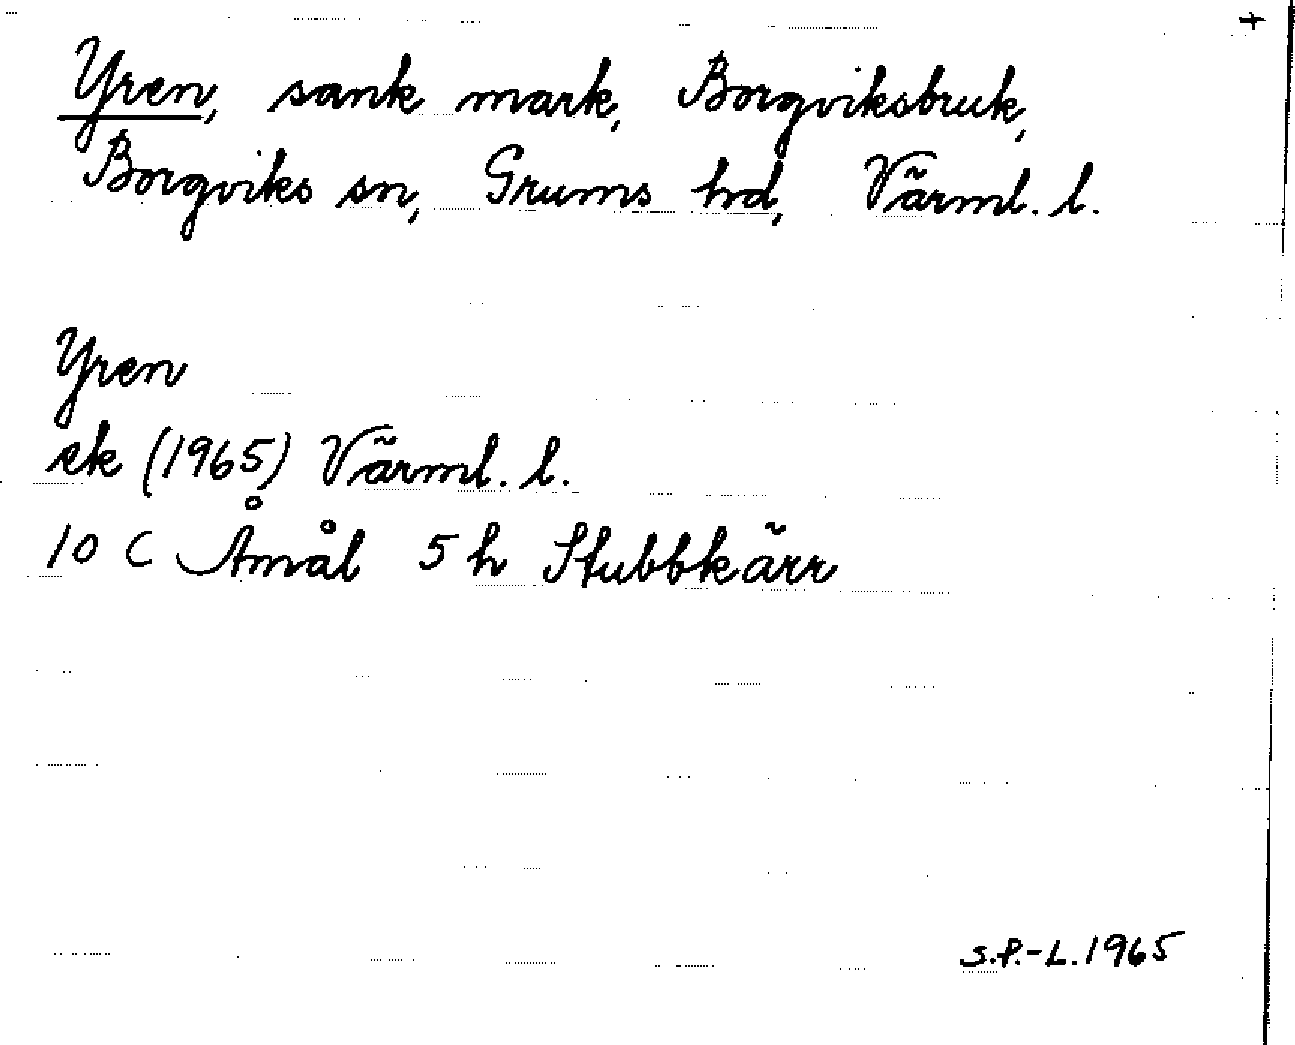 +
Yren, sank mark, Borgviksbruk,
Borgviks sn, Grums hd, Värml. l.
Yren
ek (1965) Värml. l.
10 C Åmål 5 h Stubbkärr
S.P.-L. 1965